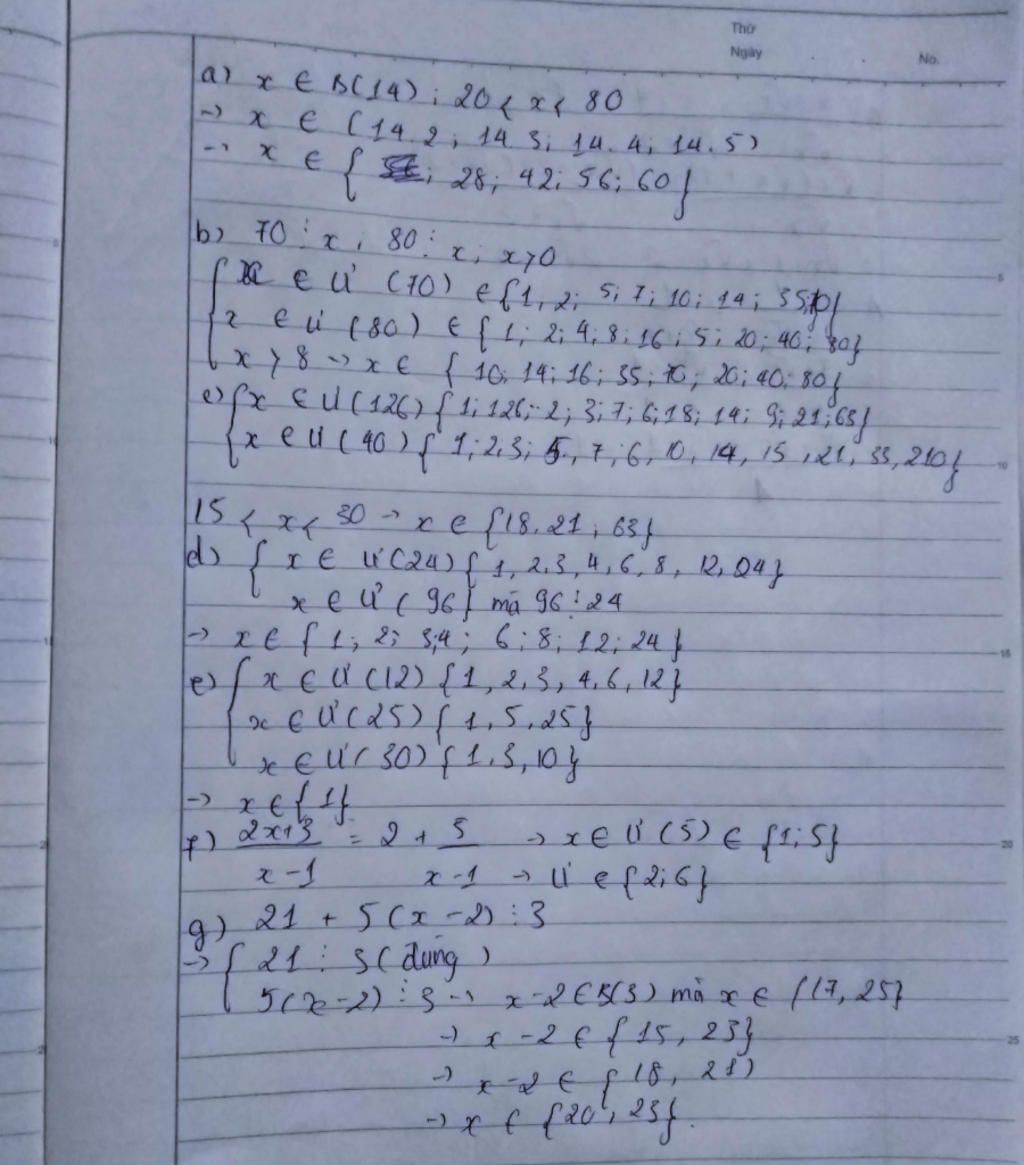 Thứ
Ngày
No.
a) x ∈ B(14) ; 20 < x < 80
→ x ∈ (14.2 ; 14.3; 14.4; 14.5)
→ x ∈ { ; 28; 42; 56; 60}
b) 70 ⋮ x , 80 ⋮ x ; x > 0
{ x ∈ Ư (70) ∈ {1, 2; 5; 7; 10; 14; 35; 70}
x ∈ Ư (80) ∈ { 1; 2; 4; 8; 16; 5; 20; 40; 80}
x > 8 → x ∈ { 10; 14; 16; 35; 70; 20; 40; 80}
c) { x ∈ Ư(126) { 1; 126; 2; 3; 7; 6; 18; 14; 9; 21; 63}
x ∈ Ư( 40) { 1; 2, 3; 5, 7; 6, 10, 14, 15, 21, 35, 210}
15 < x < 30 → x ∈ {18, 21; 63}
d) { x ∈ Ư(24) { 1, 2, 3, 4, 6, 8, 12, 24}
x ∈ Ư ( 96} mà 96 ⋮ 24
→ x ∈ { 1; 2; 3; 4; 6; 8; 12; 24}
e) { x ∈ Ư (12) {1, 2, 3, 4, 6, 12}
x ∈ Ư(25) { 1, 5, 25}
x ∈ Ư( 30) { 1, 3, 10}
→ x ∈ { 1}
f) (2x+3)/(x-1) = 2 + 5/(x-1) → x ∈ Ư (5) ∈ {1; 5}
→ Ư ∈ {2; 6}
g) 21 + 5(x-2) ⋮ 3
→ { 21 ⋮ 3 (đúng)
5(x-2) ⋮ 3 → x-2 ∈ B(3) mà x ∈ {17, 25}
→ x-2 ∈ { 15, 23}
→ x-2 ∈ { 18, 21)
→ x ∈ {20, 23}.